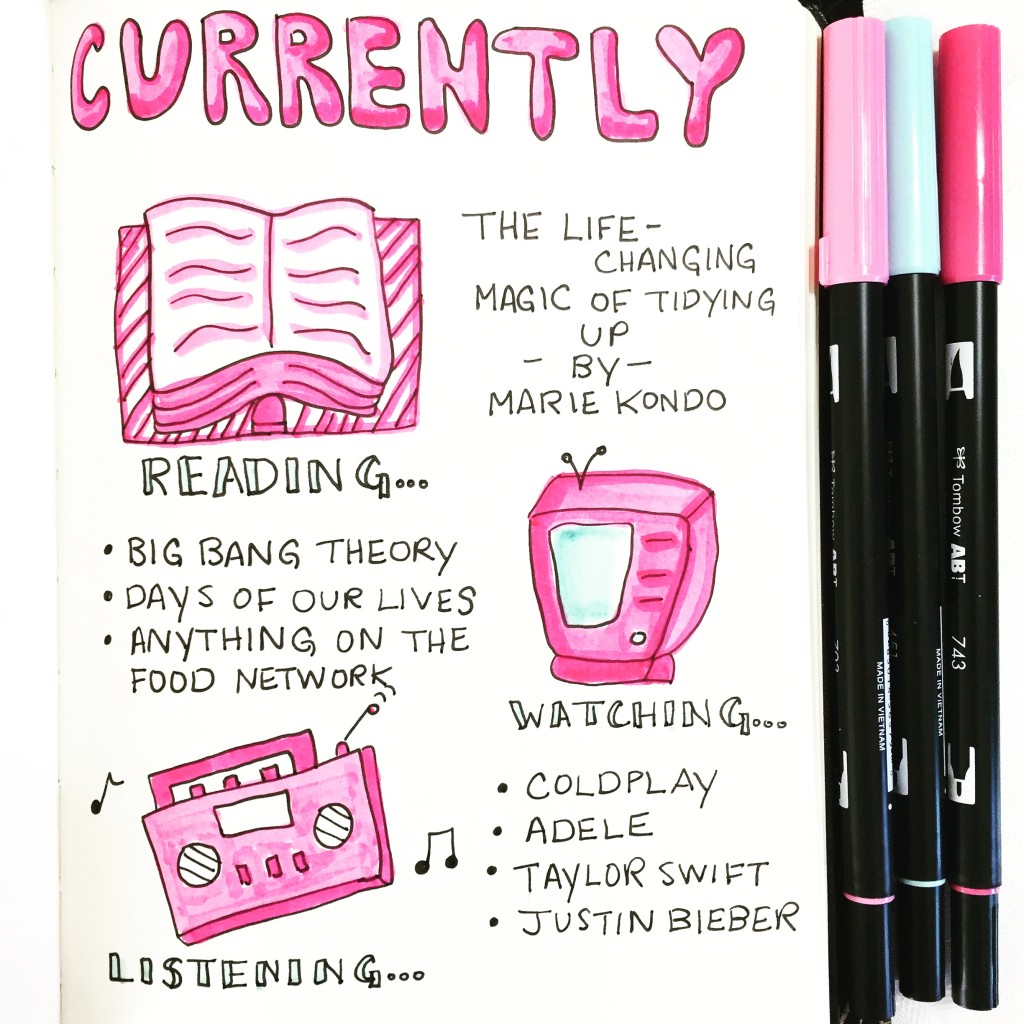 CURRENTLY
THE LIFE-
CHANGING
MAGIC OF TIDYING
UP
- BY -
MARIE KONDO
READING...
• BIG BANG THEORY
• DAYS OF OUR LIVES
• ANYTHING ON THE
FOOD NETWORK
WATCHING...
• COLDPLAY
• ADELE
• TAYLOR SWIFT
• JUSTIN BIEBER
LISTENING...
Tombow ABT
MADE IN VIETNAM
MADE IN VIETNAM
Tombow ABT 743